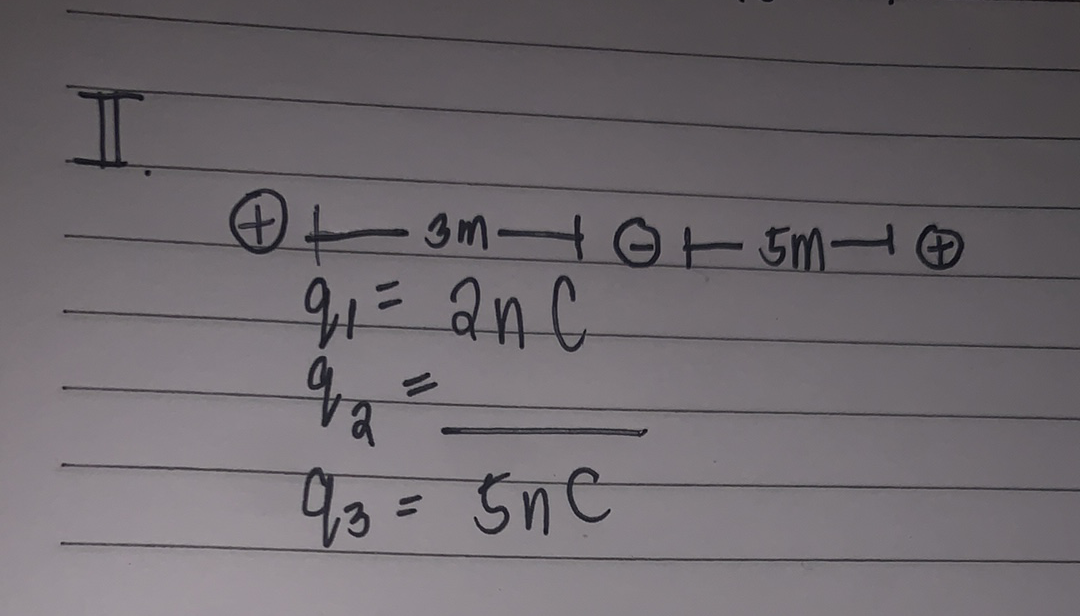 II.
⊕ |— 3m —| ⊖ |— 5m —| ⊕
q₁ = 2nC
q₂ = ______
q₃ = 5nC